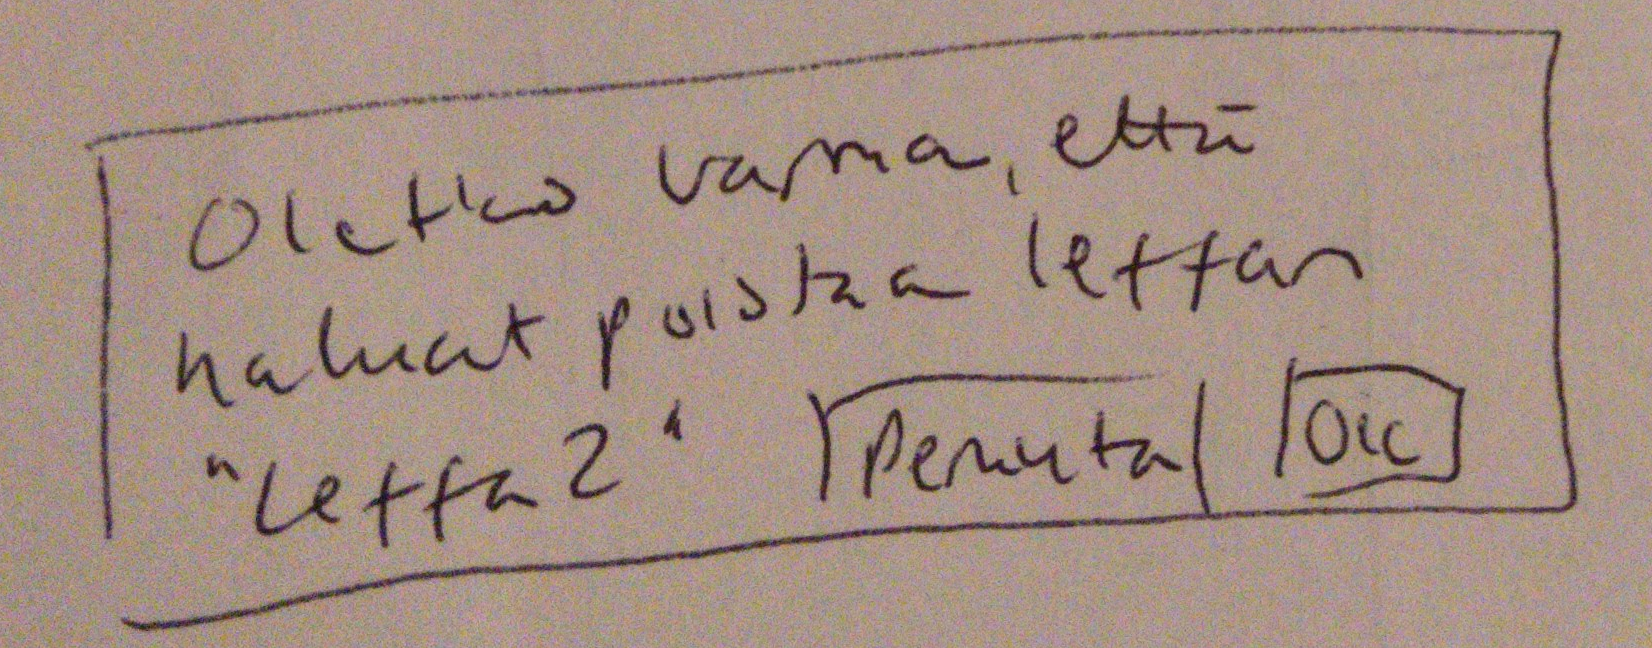 Oletko varma, että
haluat poistaa leffan
"Leffa 2" Peruuta OK